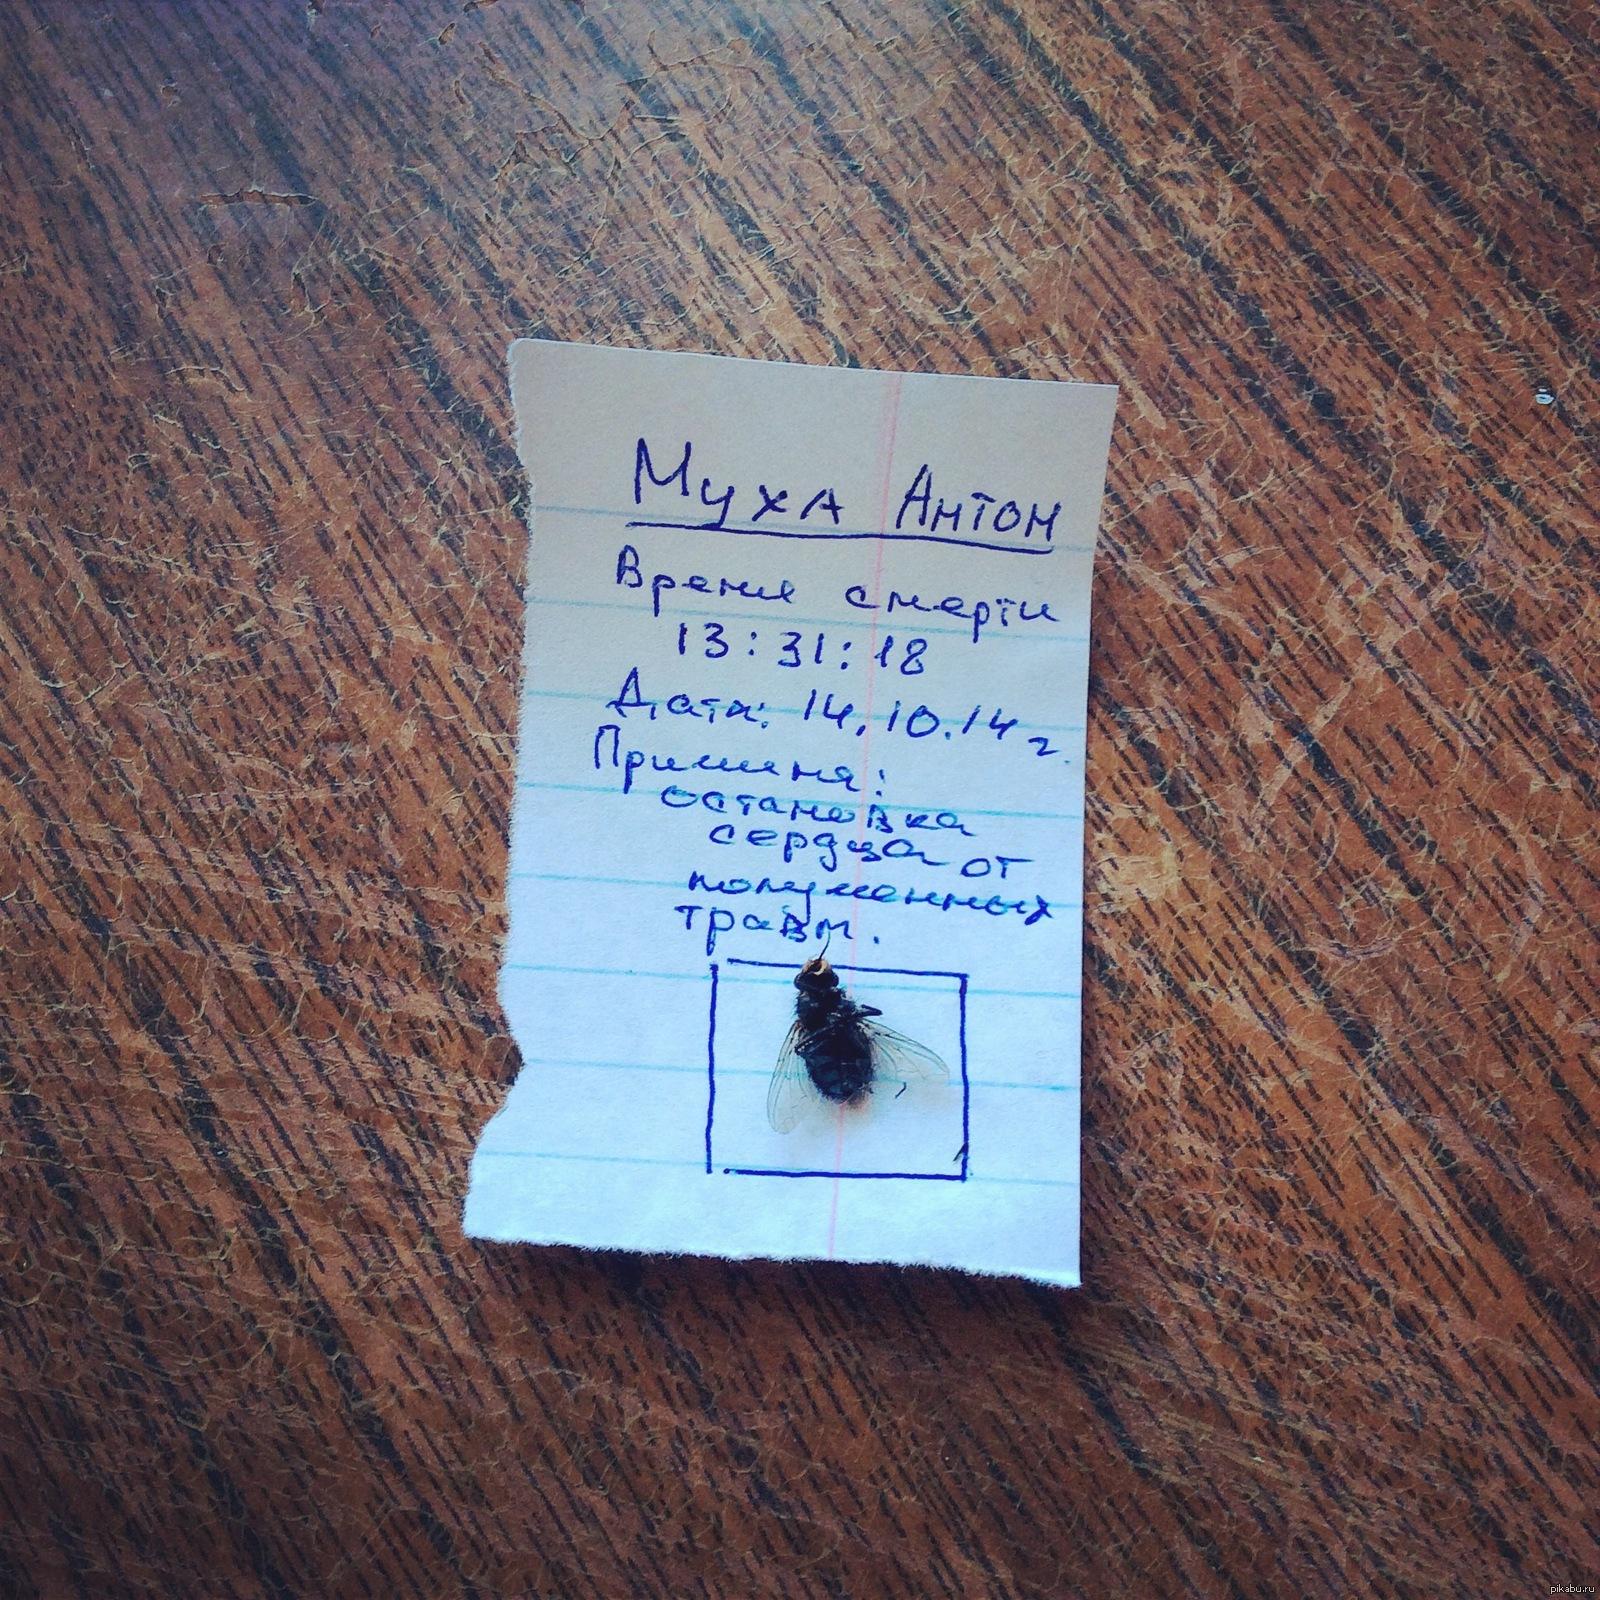 Муха Антон
Время смерти
13:31:18
Дата: 14.10.14 г.
Причина:
остановка
сердца от
полученных
травм.
pikabu.ru